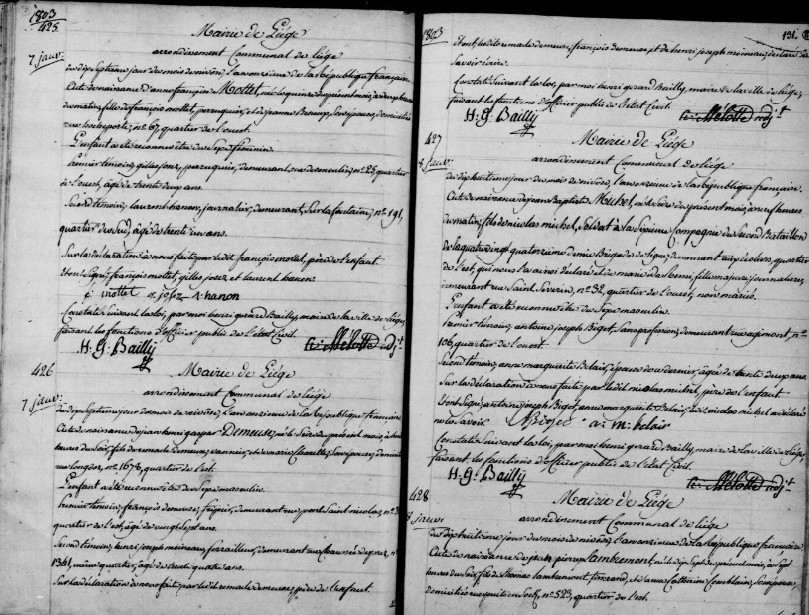 1803
425.
7 janv:
Mairie de Liége
arrondissement Communal de Liége
du dixseptieme jour du mois de nivose, l'an onzieme de la République française
Acte de naissance d'anne françoise Mottet, née le quinze du présent mois, à
du matin, fille de françois mottet, perruquier, et de jeanne domiciliés
n.º 67, quartier de l'ouest.
L'enfant a été reconnu être du Sexe feminin.
Premier témoin, gilles josez, perruquier, demeurant, rue des moulins, n.º 25, quartier
de l'ouest, âgé de trente deux ans.
Second témoin, laurent hanon, journalier, demeurant, Sur la fontaine, n.º 191,
quartier du Sud, âgé de trente un ans.
Sur la déclaration à nous faite par le dit françois mottet, père de l'enfant
et ont Signé françois mottet, gilles josez et laurent hanon.
f. mottet g. josez l. hanon
Constaté suivant la loi, par moi henri gerard Bailly, maire de la ville de Liége,
faisant les fonctions d'officier public de l'état Civil.
H. G. Bailly
Mélotte adj.t
426
7 janv:
Mairie de Liége
arrondissement Communal de Liége
du dixseptieme jour du mois de nivose, l'an onzieme de la République française
Acte de naissance de jean henri gaspar Demeuse, né le Seize du présent mois, à
heures du Soir, fils de remacle demeuse, vannier, et de marie
rue longdoz, n.º 1678, quartier de l'est.
L'enfant a été reconnu être du Sexe masculin.
Premier témoin, françois demeuse, fripier, demeurant rue pont Saint nicolas, n.º
quartier de l'est, âgé de vingt sept ans.
Second témoin, henri joseph moineau, ferrailleur, demeurant rue chaussée des prez, n.º
1341, même quartier, âgé de trente quatre ans.
Sur la déclaration à nous faite par le dit remacle demeuse, père de l'enfant.
1803
131.
Et ont les dits remacle demeuse, françois demeuse, et de henri joseph moineau, déclaré ne
Savoir écrire.
Constaté Suivant la loi, par moi henri gerard Bailly, maire de la ville de Liége,
faisant les fonctions d'officier public de l'état Civil.
H. G. Bailly
Mélotte adj.t
427
8 janv:
Mairie de Liége
arrondissement Communal de Liége
du dixhuitieme jour du mois de nivose, l'an onzieme de la République française.
Acte de naissance de jean Baptiste Michel, né du présent mois, à neuf heures
du matin, fils de nicolas michel, Soldat à la Sixieme Compagnie du Second Bataillon
de la quatrevingt quatorzieme demie Brigade de ligne, demeurant aux écoliers, quartier
de l'est, qui nous l'a ainsi déclaré et de marie fille majeure, journaliere,
demeurant rue Saint Severin, n.º 32, quartier de l'ouest, non mariés.
L'enfant a été reconnu être du Sexe masculin.
Premier témoin, antoine joseph Biget, Sans profession, demeurant rue agimont, n.º
106, quartier de l'ouest.
Second témoin, anne marguerite Belair, épouse du dernier, âgée de trente deux ans.
Sur la déclaration à nous faite par le dit nicolas michel, père de l'enfant.
Et ont Signé, antoine joseph Biget, anne marguerite Belair, et le dit nicolas michel a déclaré
ne le Savoir. Biget a. m. belair
Constaté Suivant la loi, par moi henri gerard Bailly, maire de la ville de Liége,
faisant les fonctions d'officier public de l'état Civil.
H. G. Bailly
Mélotte adj.t
428
8 janv:
Mairie de Liége
arrondissement Communal de Liége
du dixhuitieme jour du mois de nivose, l'an onzieme de la République française.
Acte de naissance de jean pierre Lambermont, né le dix Sept du présent mois, à Sept
heures du Soir, fils de thomas Lambermont, tisserand, et d'anne Catherine Comblain, Son épouse,
domiciliés rue puits en Sock, n.º 523, quartier de l'est.